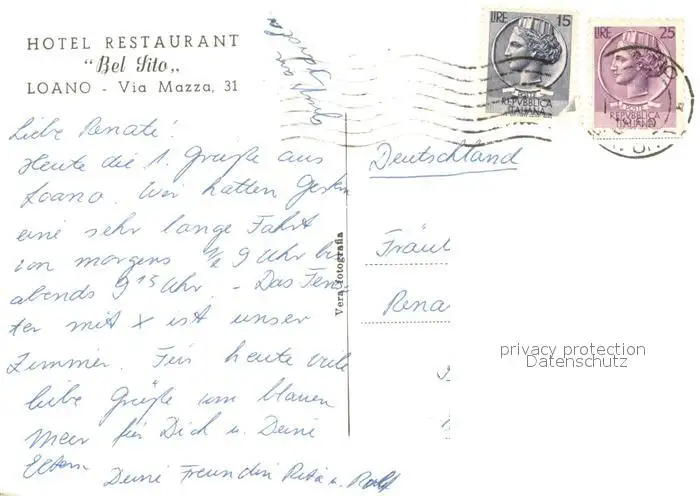 HOTEL RESTAURANT
"Bel Sito,,
LOANO - Via Mazza, 31
LIRE 15
POSTE
REPVBBLICA
ITALIANA
LIRE 25
POSTE
REPVBBLICA
ITALIANA
Liebe Renate!
Heute die 1. Grüße aus
Loano. Wir hatten gestern
eine sehr lange Fahrt
von morgens ½ 9 Uhr bis
abends 9 15 Uhr. - Das Fens-
ter mit x ist unser
Zimmer. Für heute viele
liebe Grüße vom blauen
Meer für Dich u. Deine
Eltern
Deine Freundin Rita u. Rolf
Vera fotografia
Deutschland
Fräul
Rena
privacy protection
Datenschutz